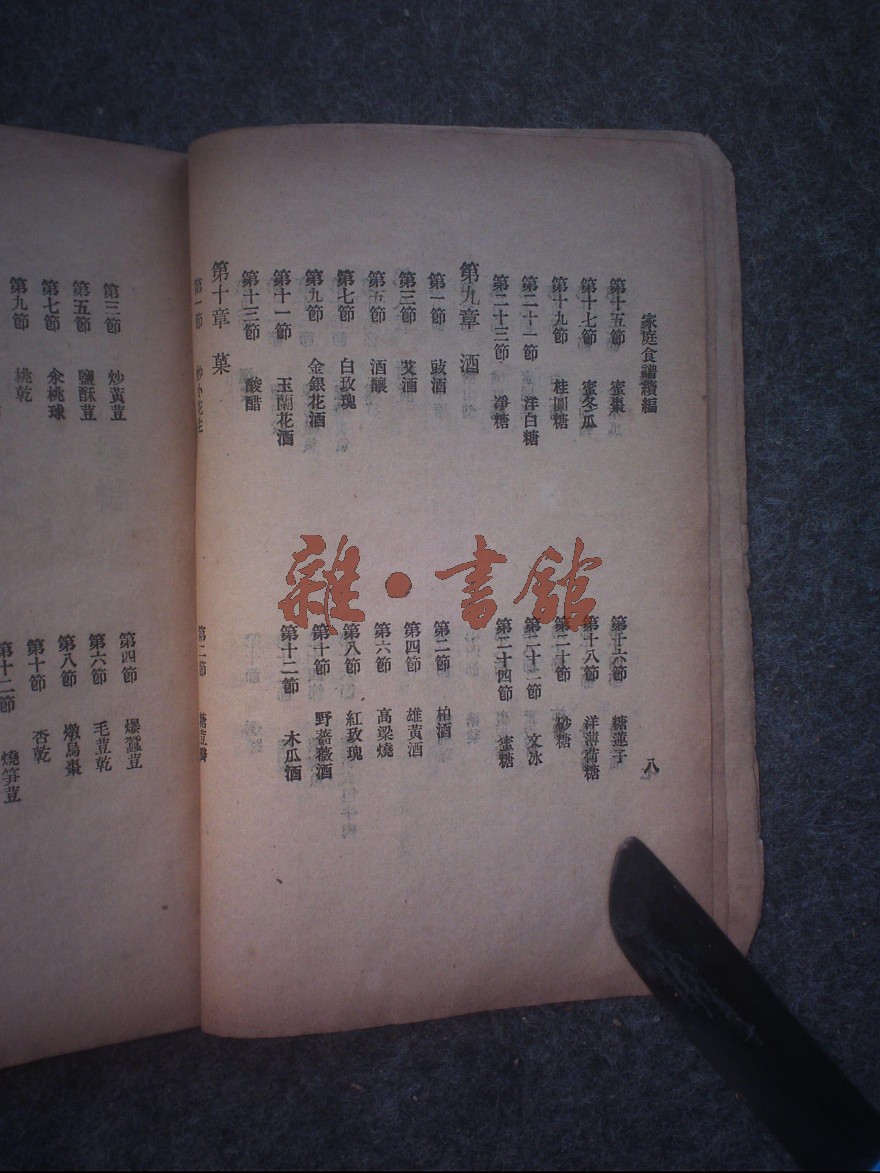 家庭食譜續編
八
第十五節 蜜棗
第十六節 糖蓮子
第十七節 蜜冬瓜
第十八節 洋薄荷糖
第十九節 桂圓糖
第二十節 砂糖
第二十一節 洋白糖
第二十二節 文冰
第二十三節 淨糖
第二十四節 蜜糖
第九章 酒
第一節 豉酒
第二節 柏酒
第三節 艾酒
第四節 雄黃酒
第五節 酒釀
第六節 高梁燒
第七節 白玫瑰
第八節 紅玫瑰
第九節 金銀花酒
第十節 野薔薇酒
第十一節 玉蘭花酒
第十二節 木瓜酒
第十三節 酸醋
第十章 菓
第一節
第二節 糖荳
第三節 炒黃荳
第四節 爆蠶荳
第五節 鹽酥荳
第六節 毛荳乾
第七節 汆桃球
第八節 燉烏棗
第九節 桃乾
第十節 杏乾
第十二節 燒笋荳
雜·書館